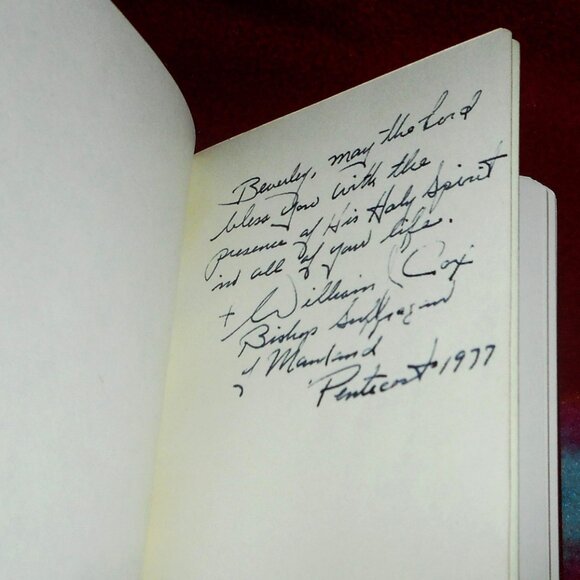 Beverley, may the Lord
bless you with the
presence of His Holy Spirit
in all of your life.
+ William Cox
Bishop Suffragan
of Maryland
Pentecost 1977